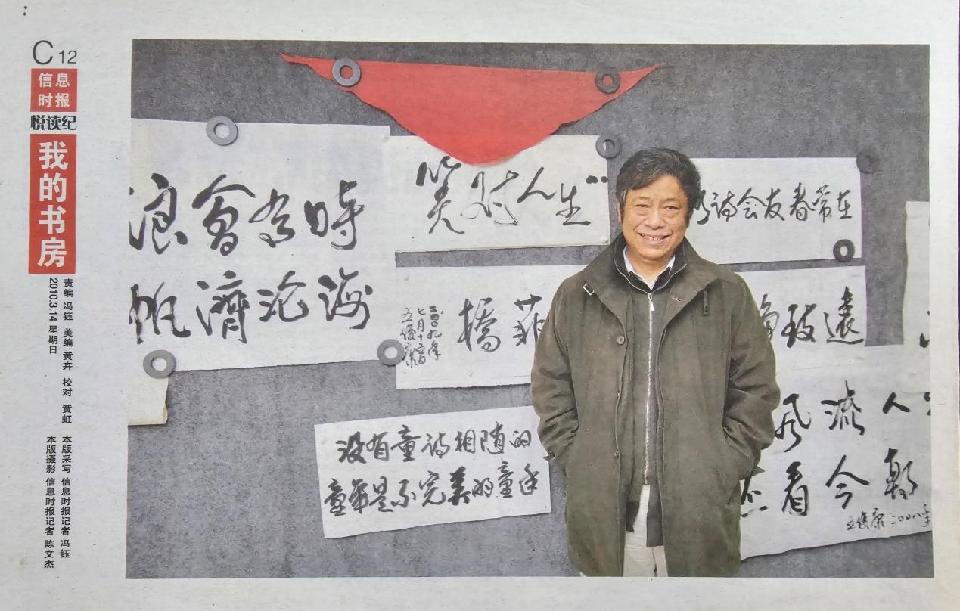 C 12
信息
时报
悦读纪
我的书房
责编 冯钰 美编 黄卉 校对 黄虹
2010.3.14 星期日
本版采写 信息时报记者 冯钰
本版摄影 信息时报记者 陈文杰
浪會有時
帆濟沧海
笑对人生
诗会友春常在
橋
二〇〇九年
七月十
致遠
没有童诗相随的
童年是不完美的童年
风流人
看今朝